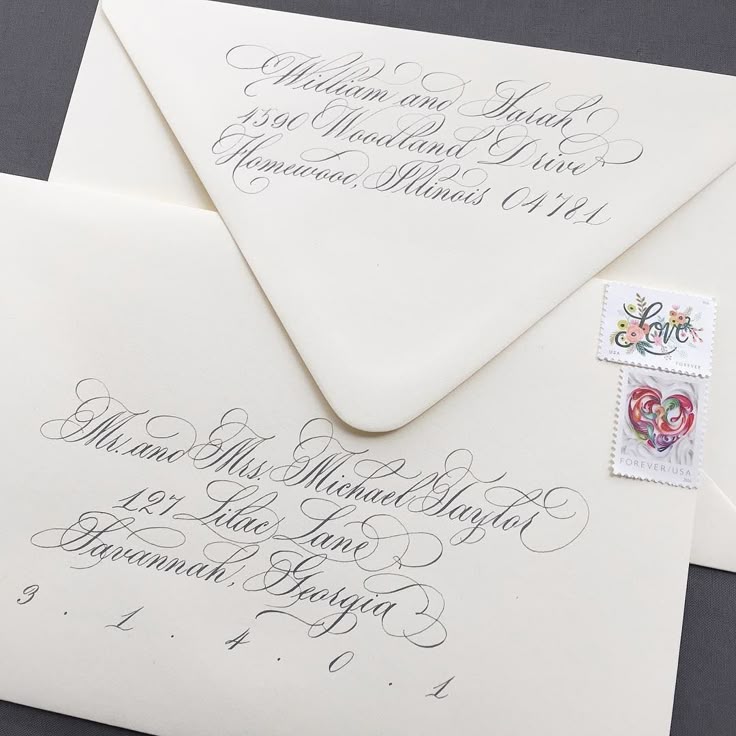 William and Sarah
4590 Woodland Drive
Homewood, Illinois 04781
Love
USA FOREVER
FOREVER/USA
Mr. and Mrs. Michael Taylor
127 Lilac Lane
Savannah, Georgia
3 . 1 . 4 . 0 . 1